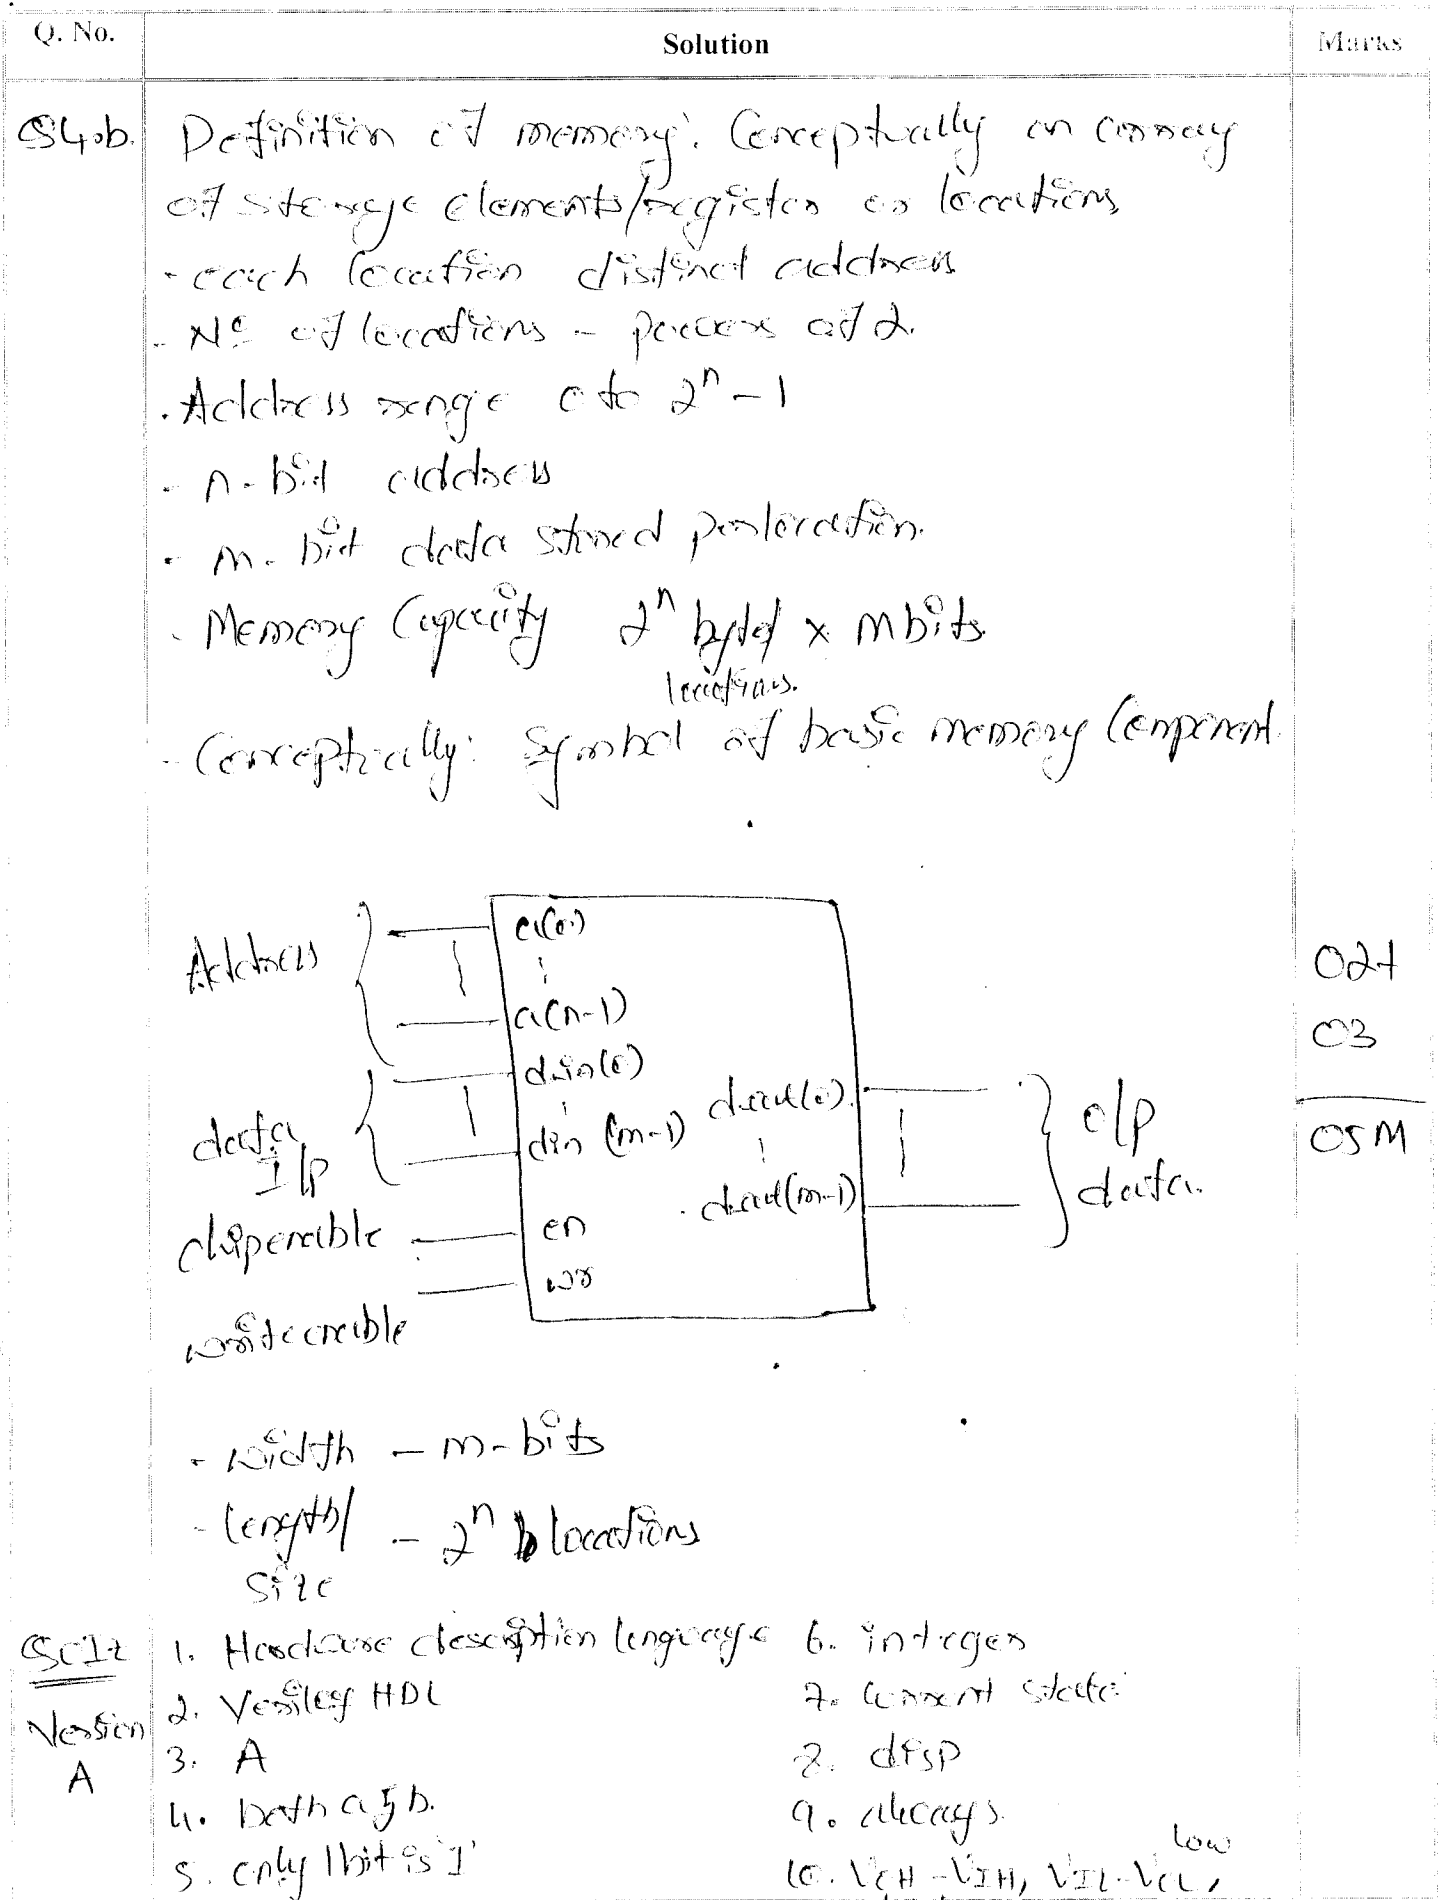 Q. No.
Solution
Marks
Q4.b. Definition of memory: Conceptually an array
of storage elements/register or locations
- each location distinct address
- No of locations - powers of 2.
- Address range 0 to 2ⁿ-1
- n-bit address
- m-bit data stored per location.
- Memory Capacity 2ⁿ bytes x m bits
locations.
- Conceptually: Symbol of basic memory Component.
Address
a(0)
a(n-1)
din(0)
din (m-1)
dout(0)
dout(m-1)
data
I/p
o/p
data.
chipenable
en
wr
write enable
02+
03
05M
- width - m-bits
- length/ - 2ⁿ locations
size
Version
A
1. Hardware description language
2. Verilog HDL
3. A
4. both a & b.
5. only 1 bit is '1'
6. integer
7. Current state
8. disp
9. always.
low
10. VOH - VIH, VIL-VOL,